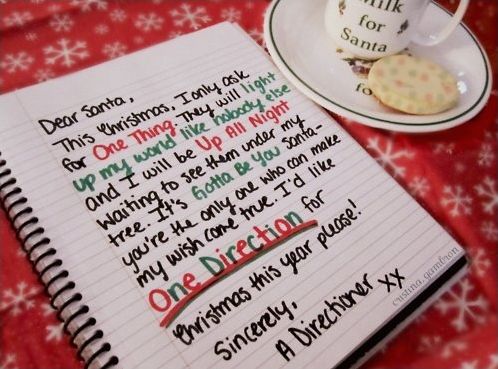 Milk
for
Santa
fo
Dear Santa,
This Christmas, I only ask
for One Thing. They will light
up my world like nobody else
and I will be Up All Night
waiting to see them under my
tree. It's Gotta Be You Santa-
you're the only one who can make
my wish come true. I'd like
One Direction for
Christmas this year please!
Sincerely,
A Directioner XX